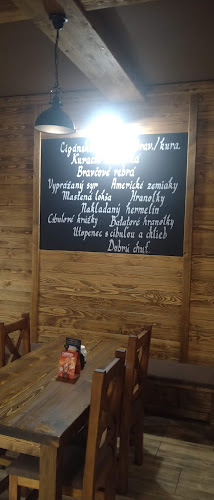 Cigánska brav./kura.
Kuracie
Bravčové rebrá
Vyprážaný syr Americké zemiaky
Mastená lokša Hranolky
Nakladaný hermelín
Cibulové krúžky Batatové hranolky
Utopenec s cibuľou a chlieb
Dobrú chuť.